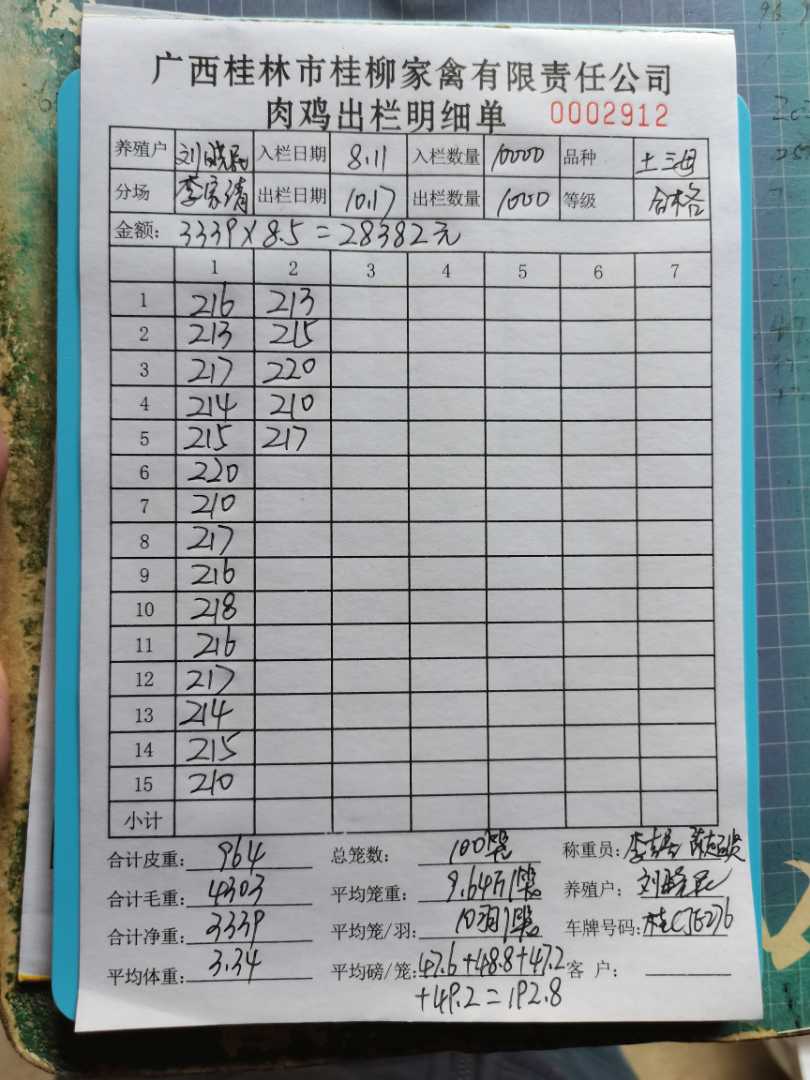 广西桂林市桂柳家禽有限责任公司
肉鸡出栏明细单 0002912
养殖户 刘晓民 入栏日期 8.11 入栏数量 10000 品种 土三母
分场 李家清 出栏日期 10.17 出栏数量 1000 等级 合格
金额: 3339×8.5=28382元
1 2 3 4 5 6 7
1 216 213
2 213 215
3 217 220
4 214 210
5 215 217
6 220
7 210
8 217
9 216
10 218
11 216
12 217
13 214
14 215
15 210
小计
合计皮重: 964 总笼数: 100笼 称重员:
合计毛重: 4303 平均笼重: 9.64斤/笼 养殖户: 刘晓民
合计净重: 3339 平均笼/羽: 10羽/笼 车牌号码:
平均体重: 3.34 平均磅/笼: 47.6+48.8+47.2 客 户:
+49.2=192.8